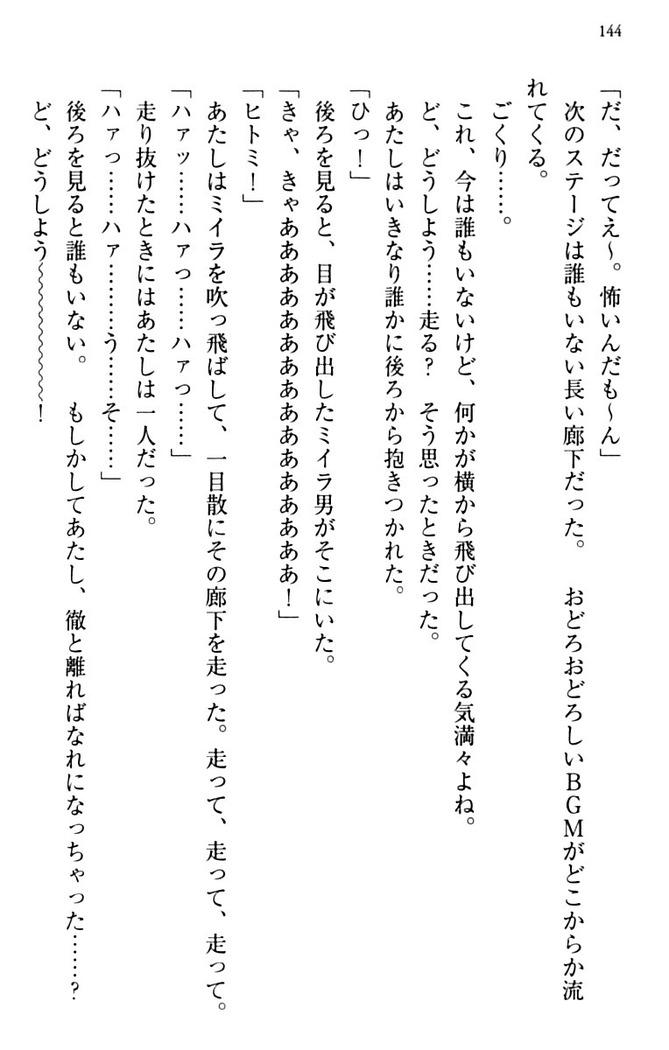 144
「だ、だってえ〜。怖いんだも〜ん」
次のステージは誰もいない長い廊下だった。　おどろおどろしいＢＧＭがどこからか流
れてくる。
ごくり……。
これ、今は誰もいないけど、何かが横から飛び出してくる気満々よね。
ど、どうしよう……走る？　そう思ったときだった。
あたしはいきなり誰かに後ろから抱きつかれた。
「ひっ！」
後ろを見ると、目が飛び出したミイラ男がそこにいた。
「きゃ、きゃあああああああああああああああ！」
「ヒトミ！」
あたしはミイラを吹っ飛ばして、一目散にその廊下を走った。走って、走って、走って。
「ハァッ……ハァっ……ハァっ……」
走り抜けたときにはあたしは一人だった。
「ハァっ……ハァ………う……そ……」
後ろを見ると誰もいない。　もしかしてあたし、徹と離ればなれになっちゃった……？
ど、どうしよう〜〜〜〜〜〜！